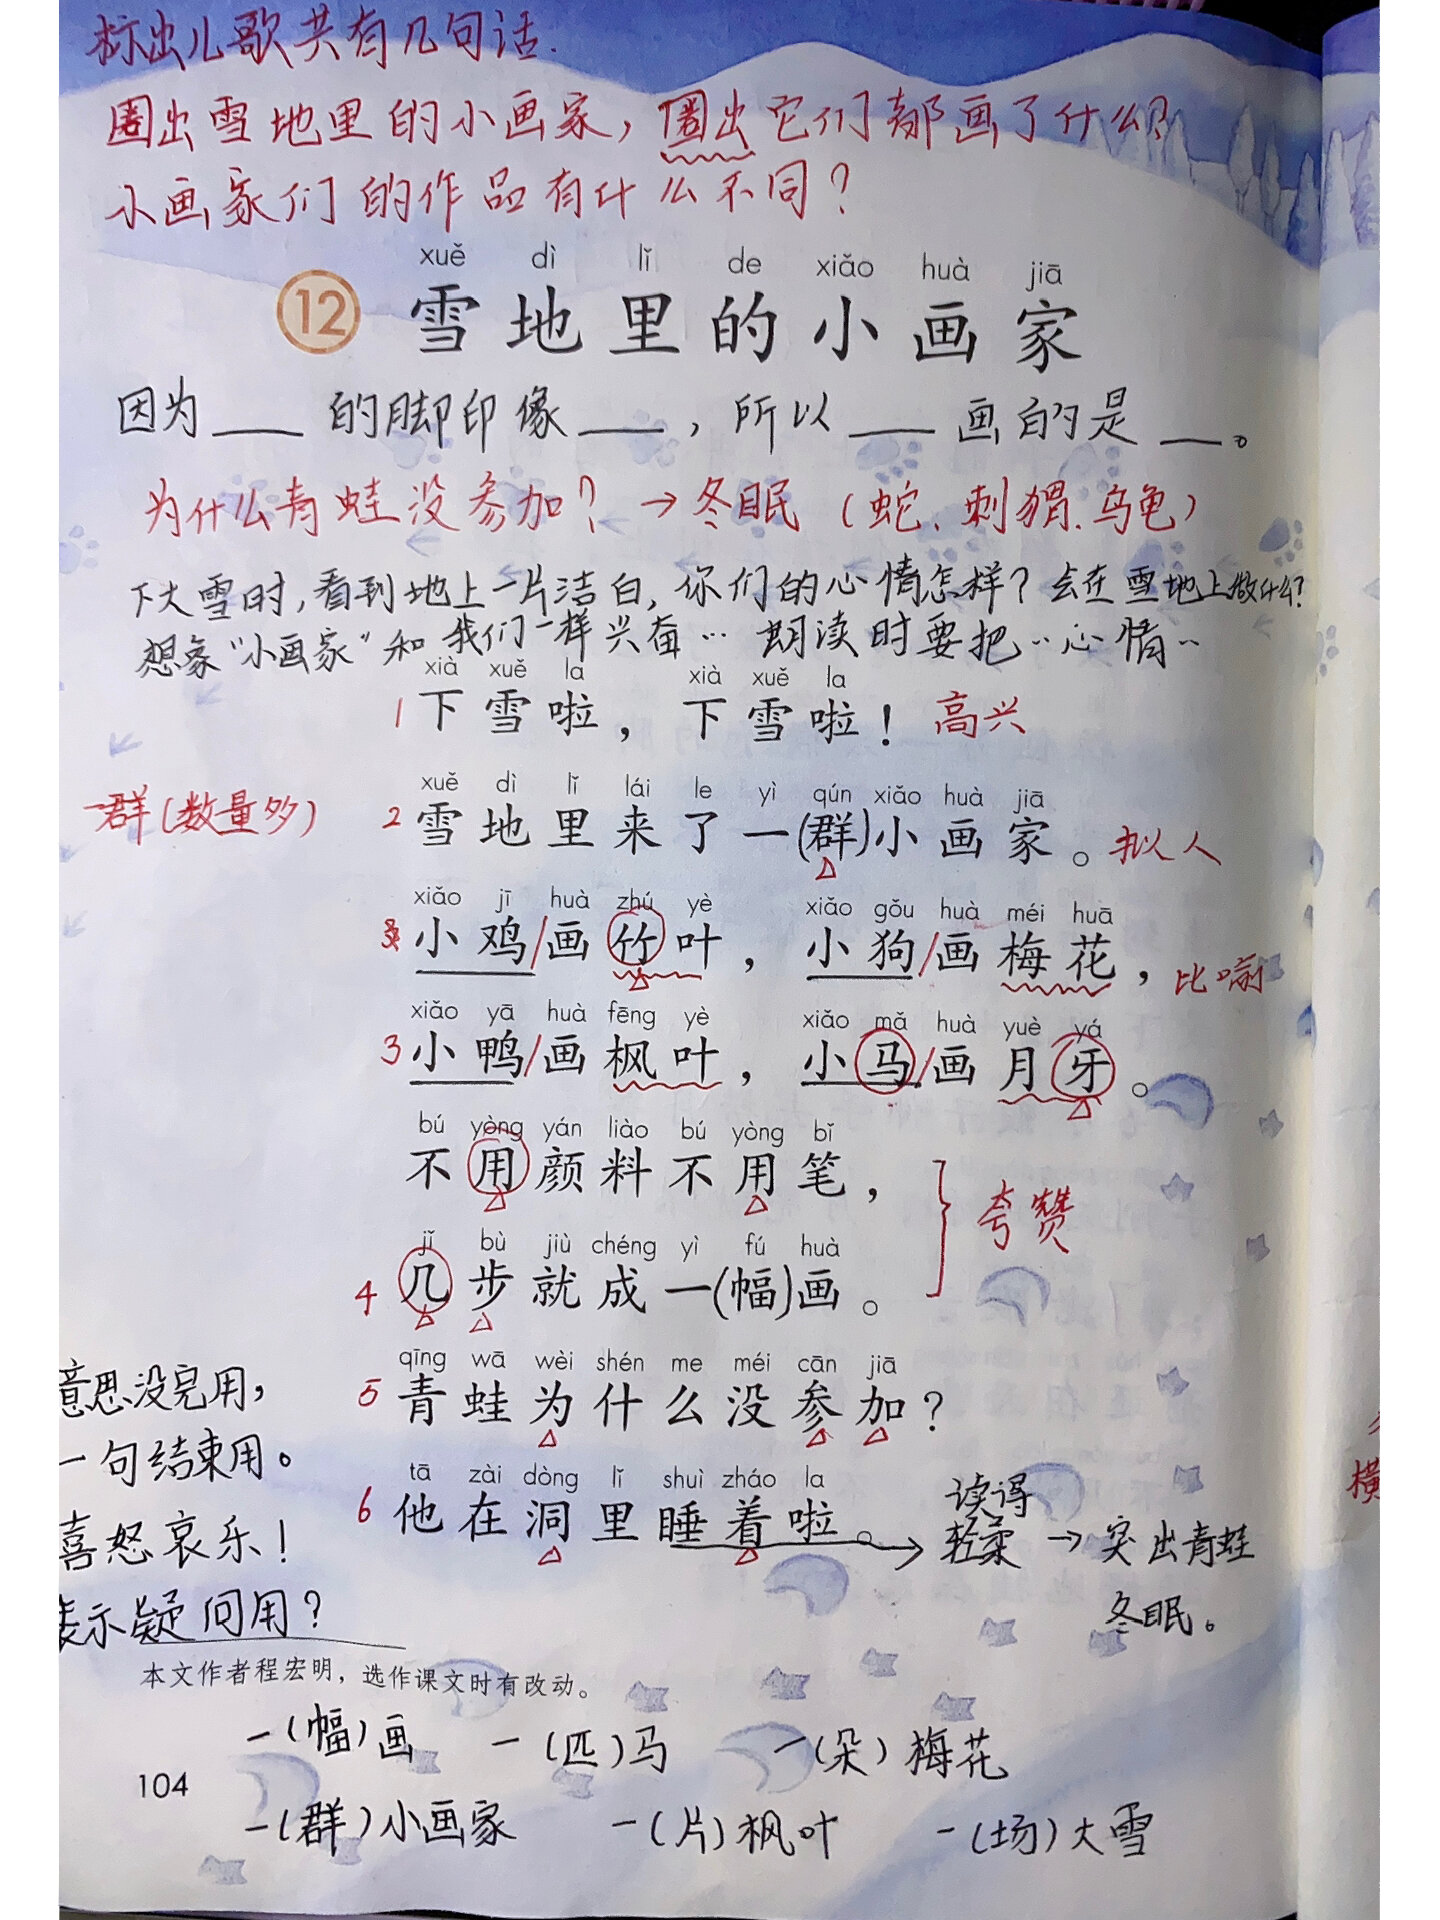 标出儿歌共有几句话.
圈出雪地里的小画家，圈出它们都画了什么？
小画家们的作品有什么不同？
xuě dì lǐ de xiǎo huà jiā
12 雪地里的小画家
因为____的脚印像____，所以____画的是__。
为什么青蛙没参加？→冬眠（蛇、刺猬.乌龟）
下大雪时，看到地上一片洁白，你们的心情怎样？会在雪地上做什么？
想象“小画家”和我们一样兴奋… 朗读时要把‥心情‥
xià xuě la xià xuě la
1 下雪啦，下雪啦！高兴
xuě dì lǐ lái le yì qún xiǎo huà jiā
一群（数量多） 2 雪地里来了一(群)小画家。拟人
xiǎo jī huà zhú yè xiǎo gǒu huà méi huā
小鸡/画竹叶，小狗/画梅花，比喻
xiǎo yā huà fēng yè xiǎo mǎ huà yuè yá
3 小鸭/画枫叶，小马/画月牙。
bú yòng yán liào bú yòng bǐ
不用颜料不用笔，
夸赞
jǐ bù jiù chéng yì fú huà
4 几步就成一(幅)画。
qīng wā wèi shén me méi cān jiā
5 青蛙为什么没参加？
tā zài dòng lǐ shuì zháo la
6 他在洞里睡着啦。
读得
轻柔→突出青蛙
冬眠。
意思没完用，
一句结束用。
喜怒哀乐！
表示疑问用？
本文作者程宏明，选作课文时有改动。
一(幅)画 一(匹)马 一(朵)梅花
104
一(群)小画家 一(片)枫叶 一(场)大雪
横